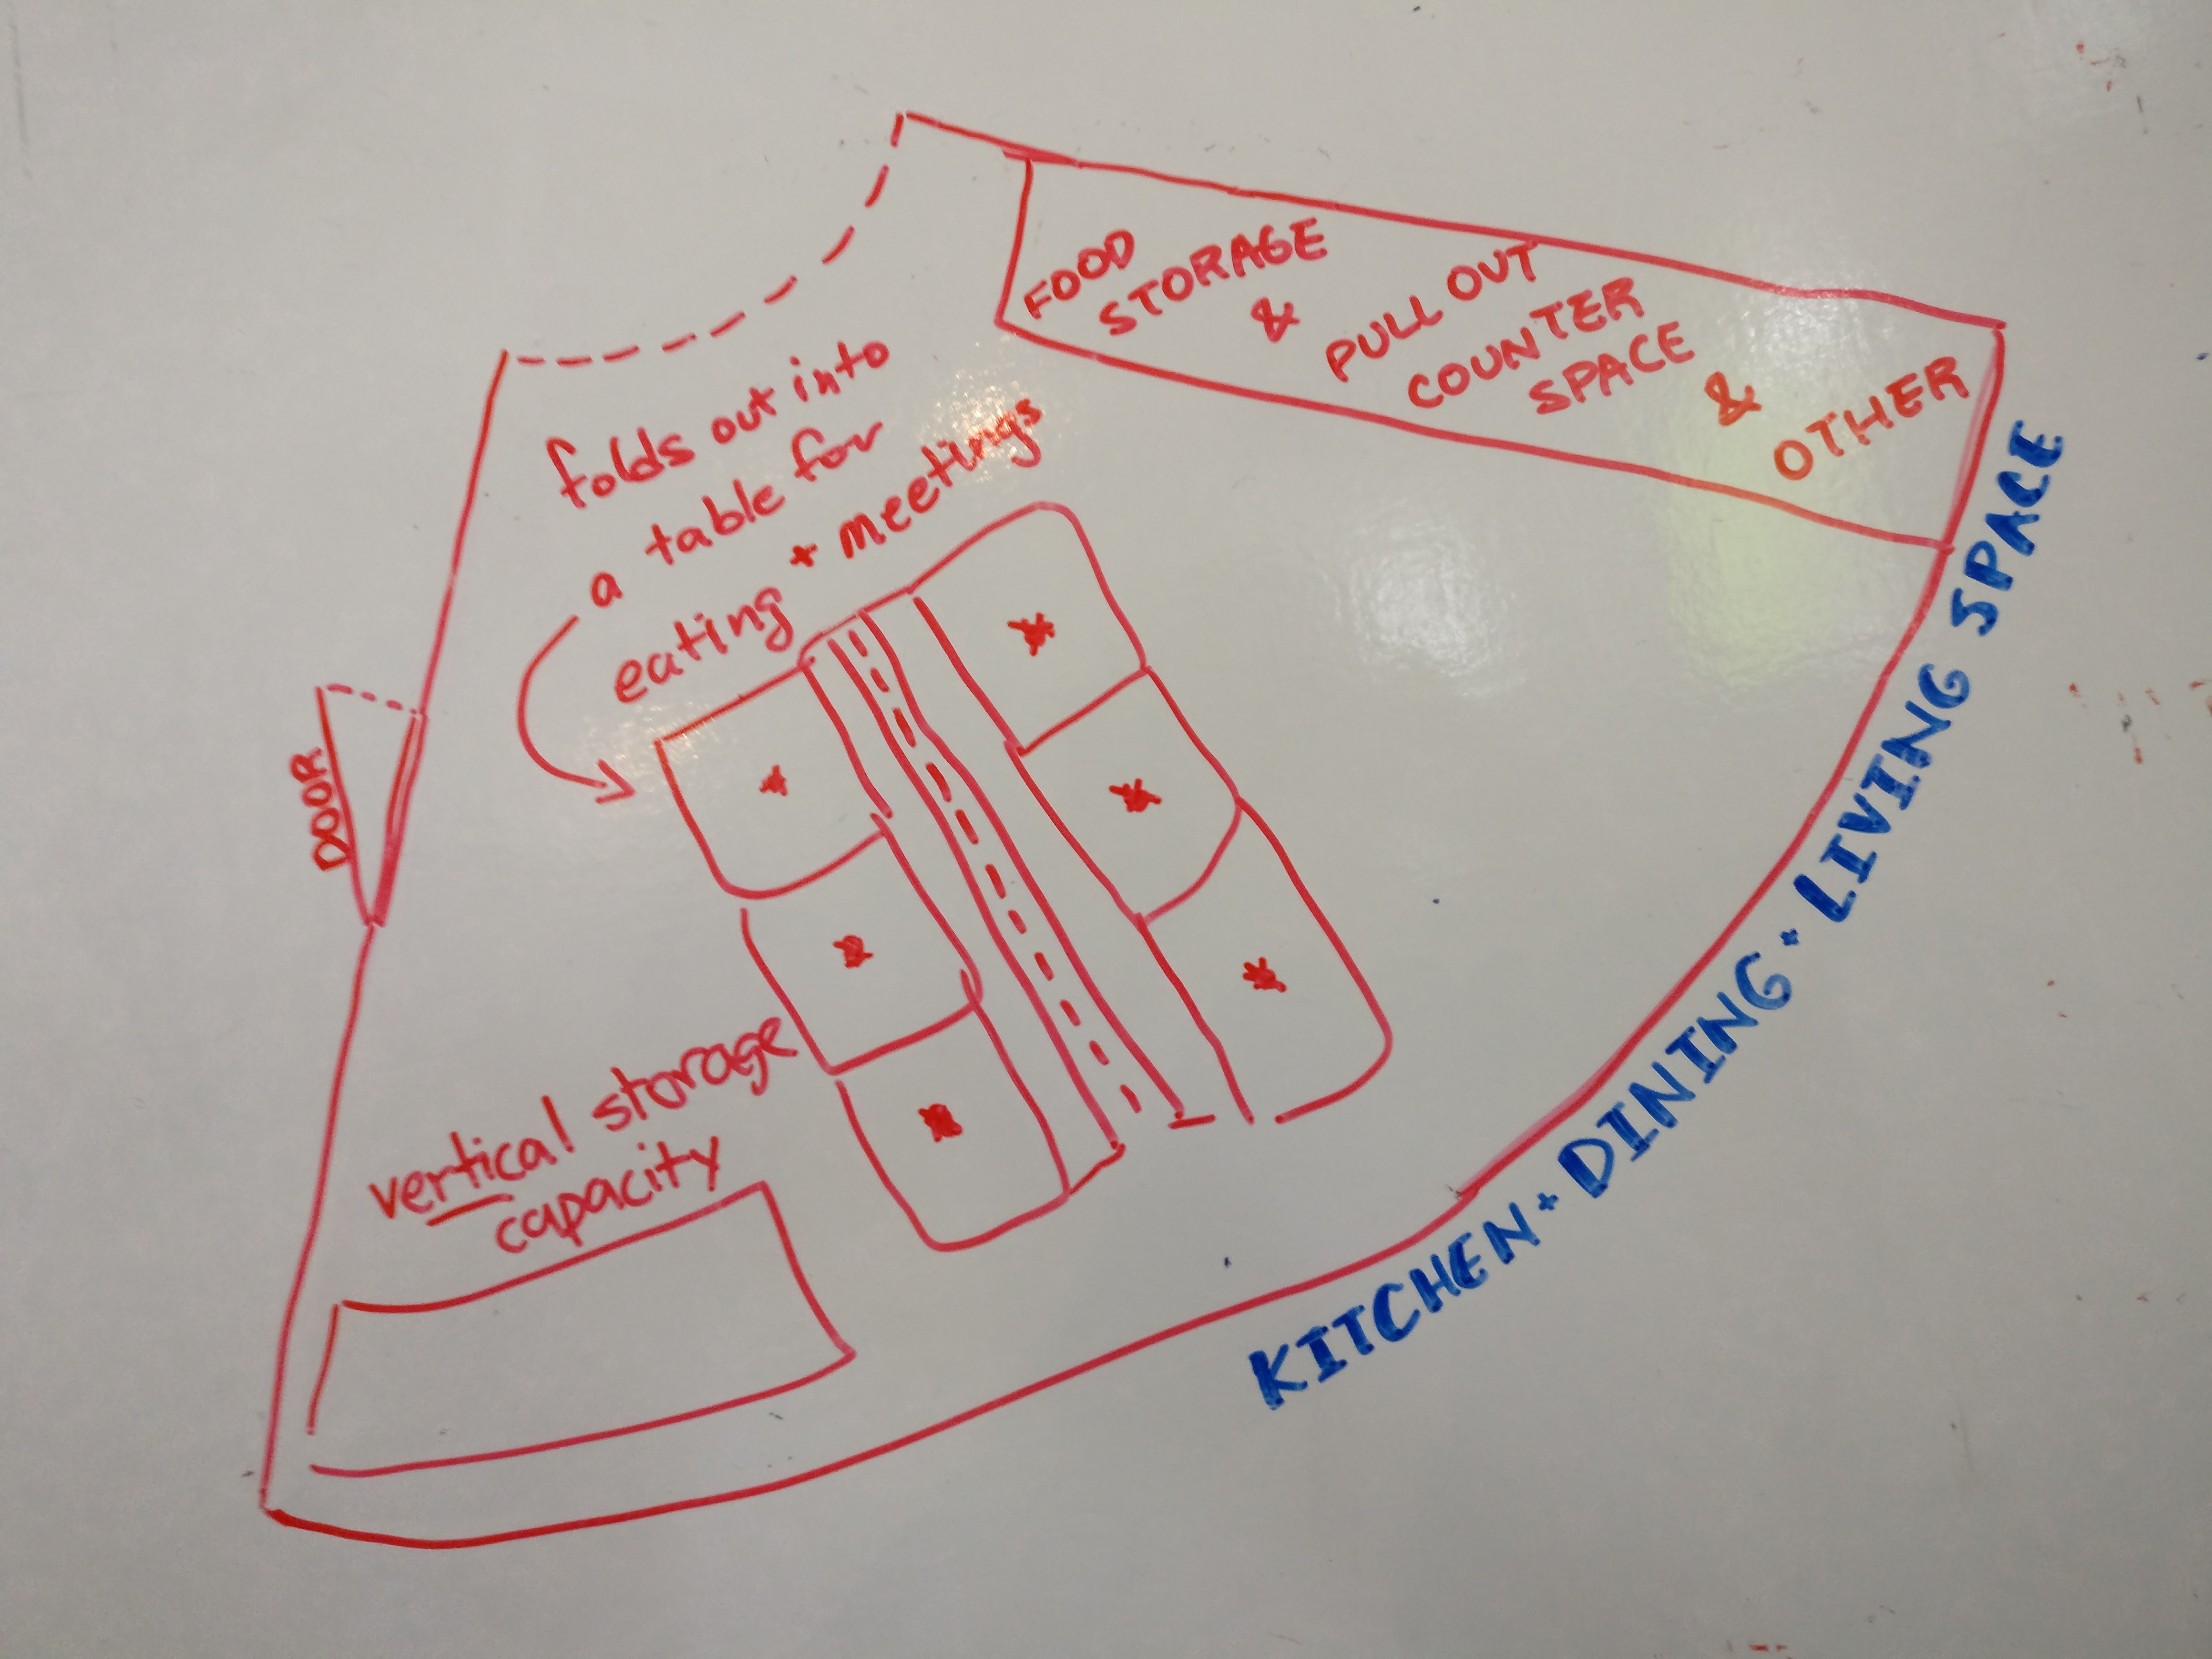 FOOD
STORAGE
&
PULL OUT
COUNTER
SPACE
&
OTHER
folds out into
a table for
eating + meetings
DOOR
vertical storage
capacity
KITCHEN + DINING + LIVING SPACE